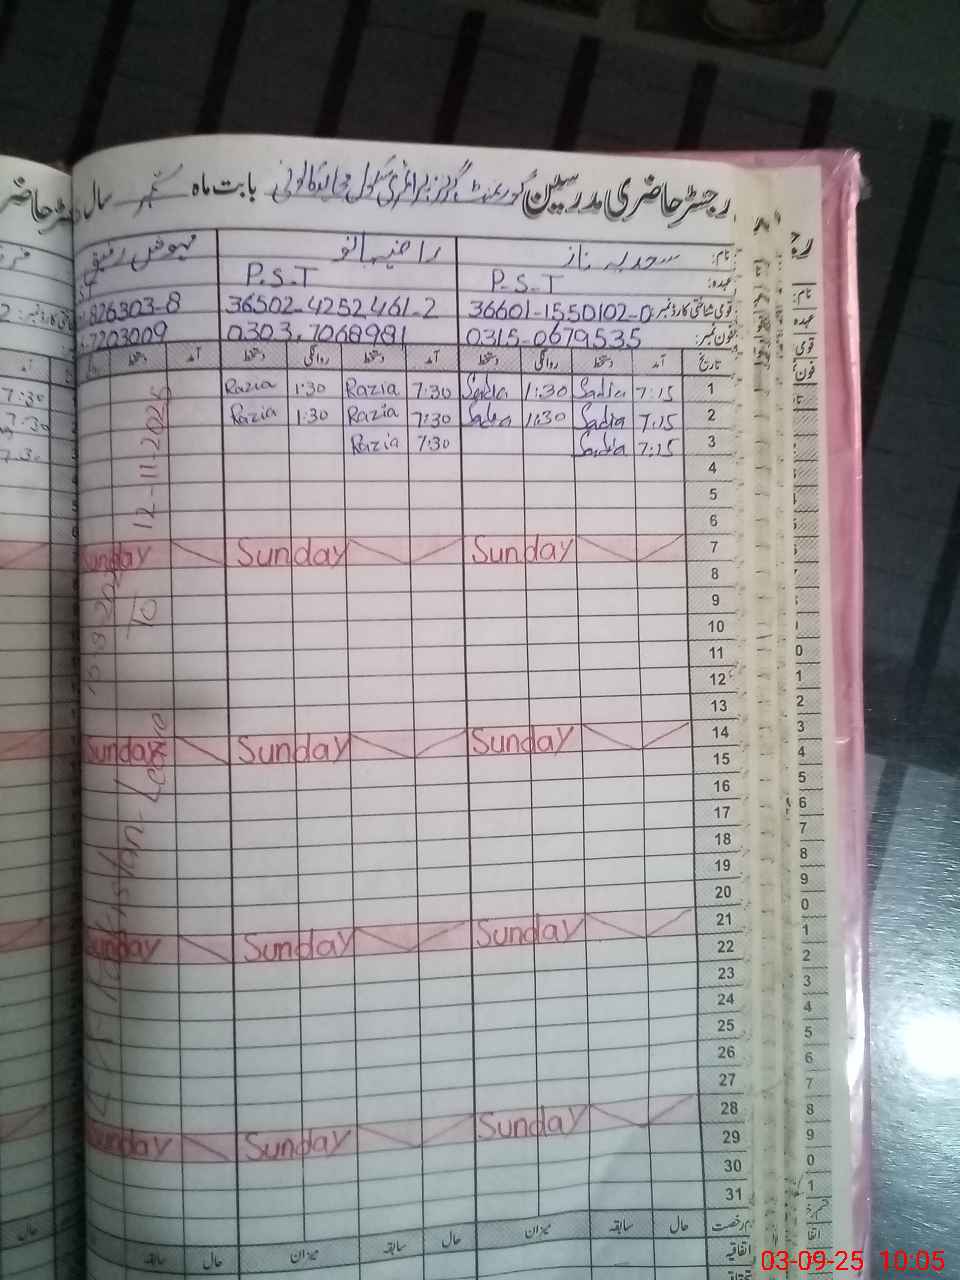 رجسٹر حاضری مدرسین گورنمنٹ گرلز پرائمری سکول مجاہد کالونی بابت ماہ ستمبر سال
نام: سعدیہ ناز راضیہ بانو مہوش رفیق
عہدہ: P.S.T P.S.T
قومی شناختی کارڈ نمبر: 36601-1550102-0 36502-4252461-2 826303-8
فون نمبر: 0315-0679535 0303-7068981 7203009
تاریخ آمد دستخط روانگی دستخط آمد دستخط روانگی دستخط آمد
1 7:15 Sadia 1:30 Sadia 7:30 Razia 1:30 Razia
2 7:15 Sadia 1:30 Sadia 7:30 Razia 1:30 Razia
3 7:15 Sadia 7:30 Razia
4
5
6
7 Sunday Sunday Sunday
8
9
10
11
12
13
14 Sunday Sunday Sunday
15
16
17
18
19
20
21 Sunday Sunday Sunday
22
23
24
25
26
27
28 Sunday Sunday Sunday
29
30
31
رخصت حال سابقہ میزان حال سابقہ میزان حال سابقہ
اتفاقیہ
12-11-2025
To
03-09-25 10:05